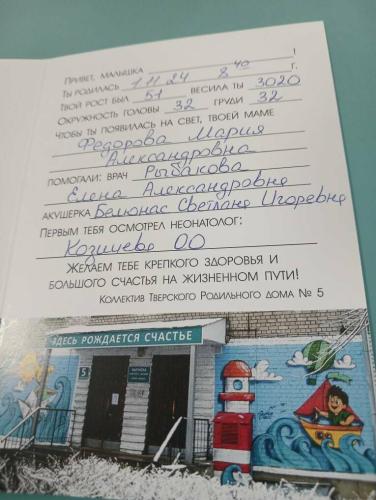 Привет, малышка !
Ты родилась 1.11.24 8⁴⁰ г.
Твой рост был 51 весила ты 3020
Окружность головы 32 груди 32
Чтобы ты появилась на свет, твоей маме
Федорова Мария
Александровна
помогали: врач Рыбакова
Елена Александровна
акушерка Белюнас Светлана Игоревна
Первым тебя осмотрел неонатолог:
Козичева ОО
Желаем тебе крепкого здоровья и
большого счастья на жизненном пути!
Коллектив Тверского Родильного дома № 5
ЗДЕСЬ РОЖДАЕТСЯ СЧАСТЬЕ
5